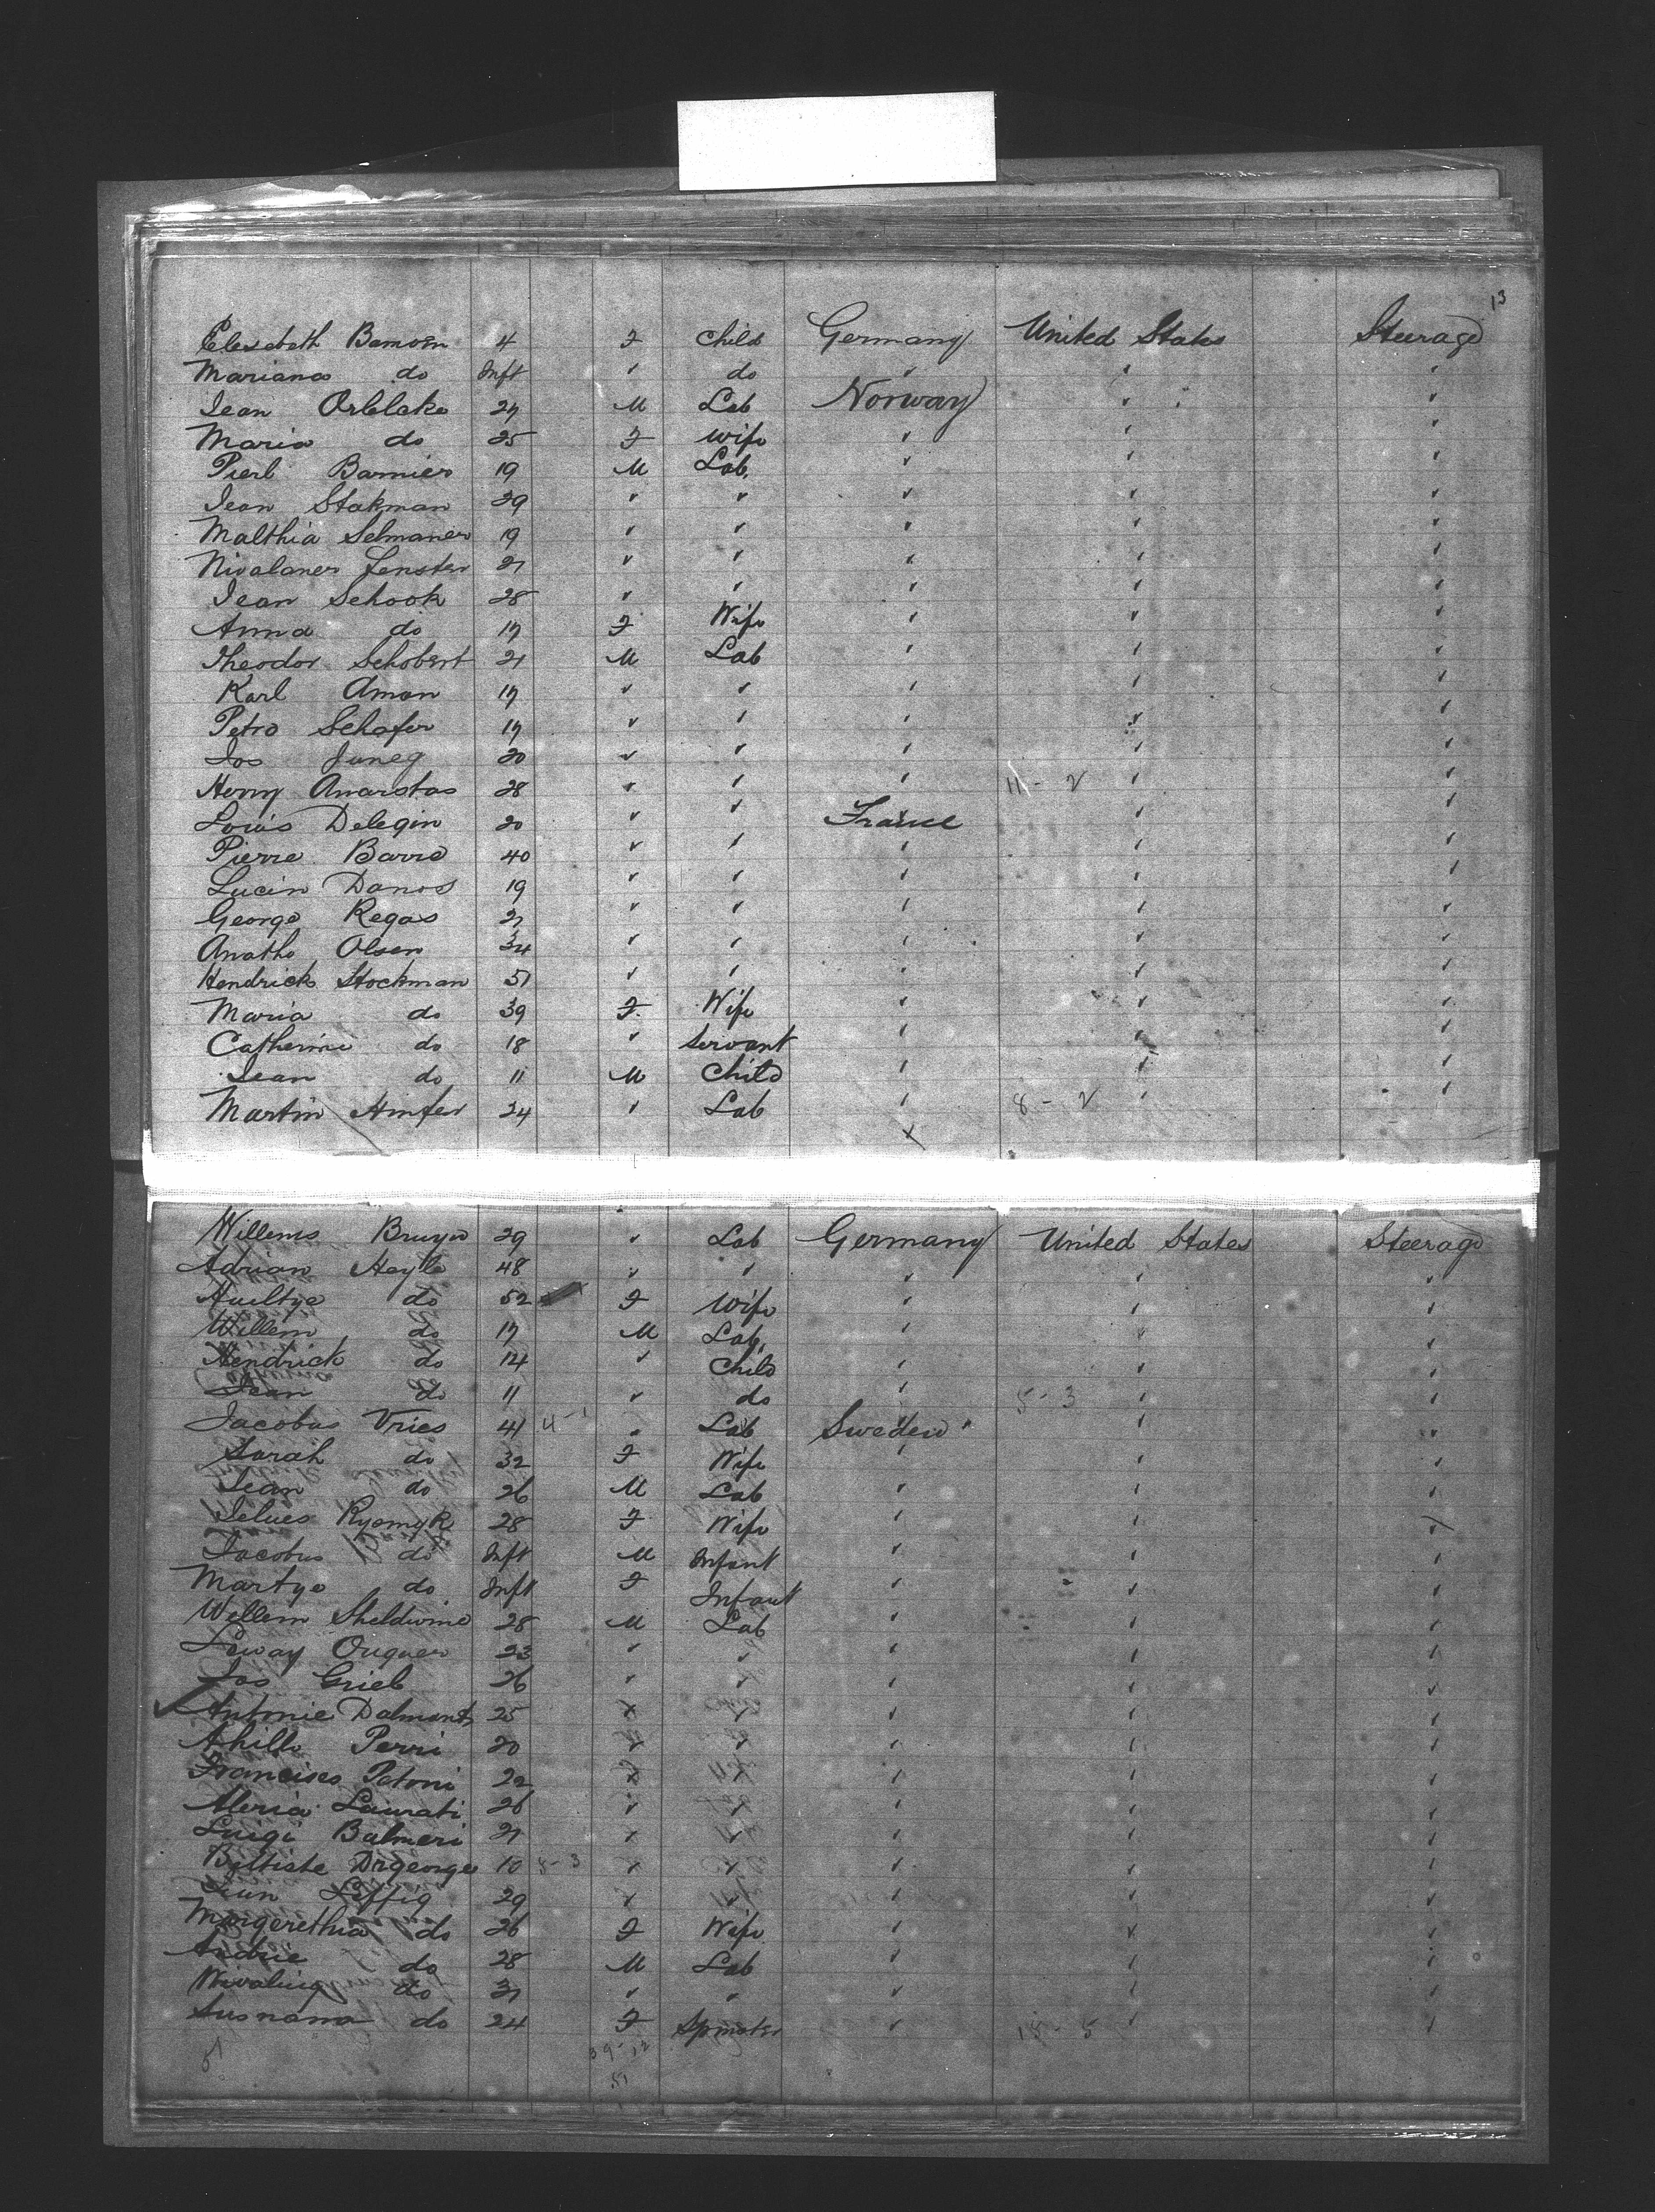 13
Elesebeth Bamoen 4 F Child Germany United States Steerage
Mariana do Inft " do " " "
Jean Orblake 27 M Lab Norway " "
Maria do 25 F Wife " " "
Pierl Barnier 19 M Lab. " " "
Jean Stakman 29 " " " " "
Malthia Selmaner 19 " " " " "
Nivalaner Jenster 21 " " " " "
Jean Schook 28 " " " " "
Anna do 17 F Wife " " "
Theodor Schobert 21 M Lab " " "
Karl Aman 17 " " " " "
Petro Schafer 17 " " " " "
Jos Juneg 20 " " " " "
Henry Anarstas 28 " " " 11 - 2 " "
Louis Delegin 20 " " France " "
Pierre Barre 40 " " " " "
Lucin Danos 19 " " " " "
George Regas 21 " " " " "
Anatho Olsen 34 " " " " "
Hendrick Stockman 51 " " " " "
Maria do 39 F. Wife " " "
Catherine do 18 " Servant " " "
Jean do 11 M Child " " "
Martin Hinfer 24 " Lab " 8 - 2 " "
Willems Bruyn 29 " Lab Germany United States Steerage
Adrian Heyle 48 " " " " "
Hueltye do 52 F Wife " " "
Willem do 17 M Lab. " " "
Hendrick do 14 " Child " " "
Jean do 11 " do " 5 - 3 " "
Jacobus Vries 41 4-1 " Lab Sweden " "
Sarah do 32 F Wife " " "
Jean do 26 M Lab " " "
Jelues Ryomyk 28 F Wife " " "
Jacobus do Inft M Infant " " "
Martye do Inft F Infant " " "
Wellem Sheldwine 28 M Lab " " "
Leway Ouquer 23 " " " " "
Jos Grieb 26 " " " " "
Antonie Dalmonts 25 " " " " "
Ahille Perri 20 " " " " "
Francisco Petoni 22 " " " " "
Aleria Laurati 26 " " " " "
Luigi Balmeri 21 " " " " "
Biltiste Drgeorge 10 8-3 " " " " "
Jean Leffig 29 " " " " "
Margerethia do 26 F Wife " " "
Andrie do 28 M Lab " " "
Nivaling do 31 " " " " "
Susnama do 24 F Spinster " 18 - 5 " "
51 39-12
51